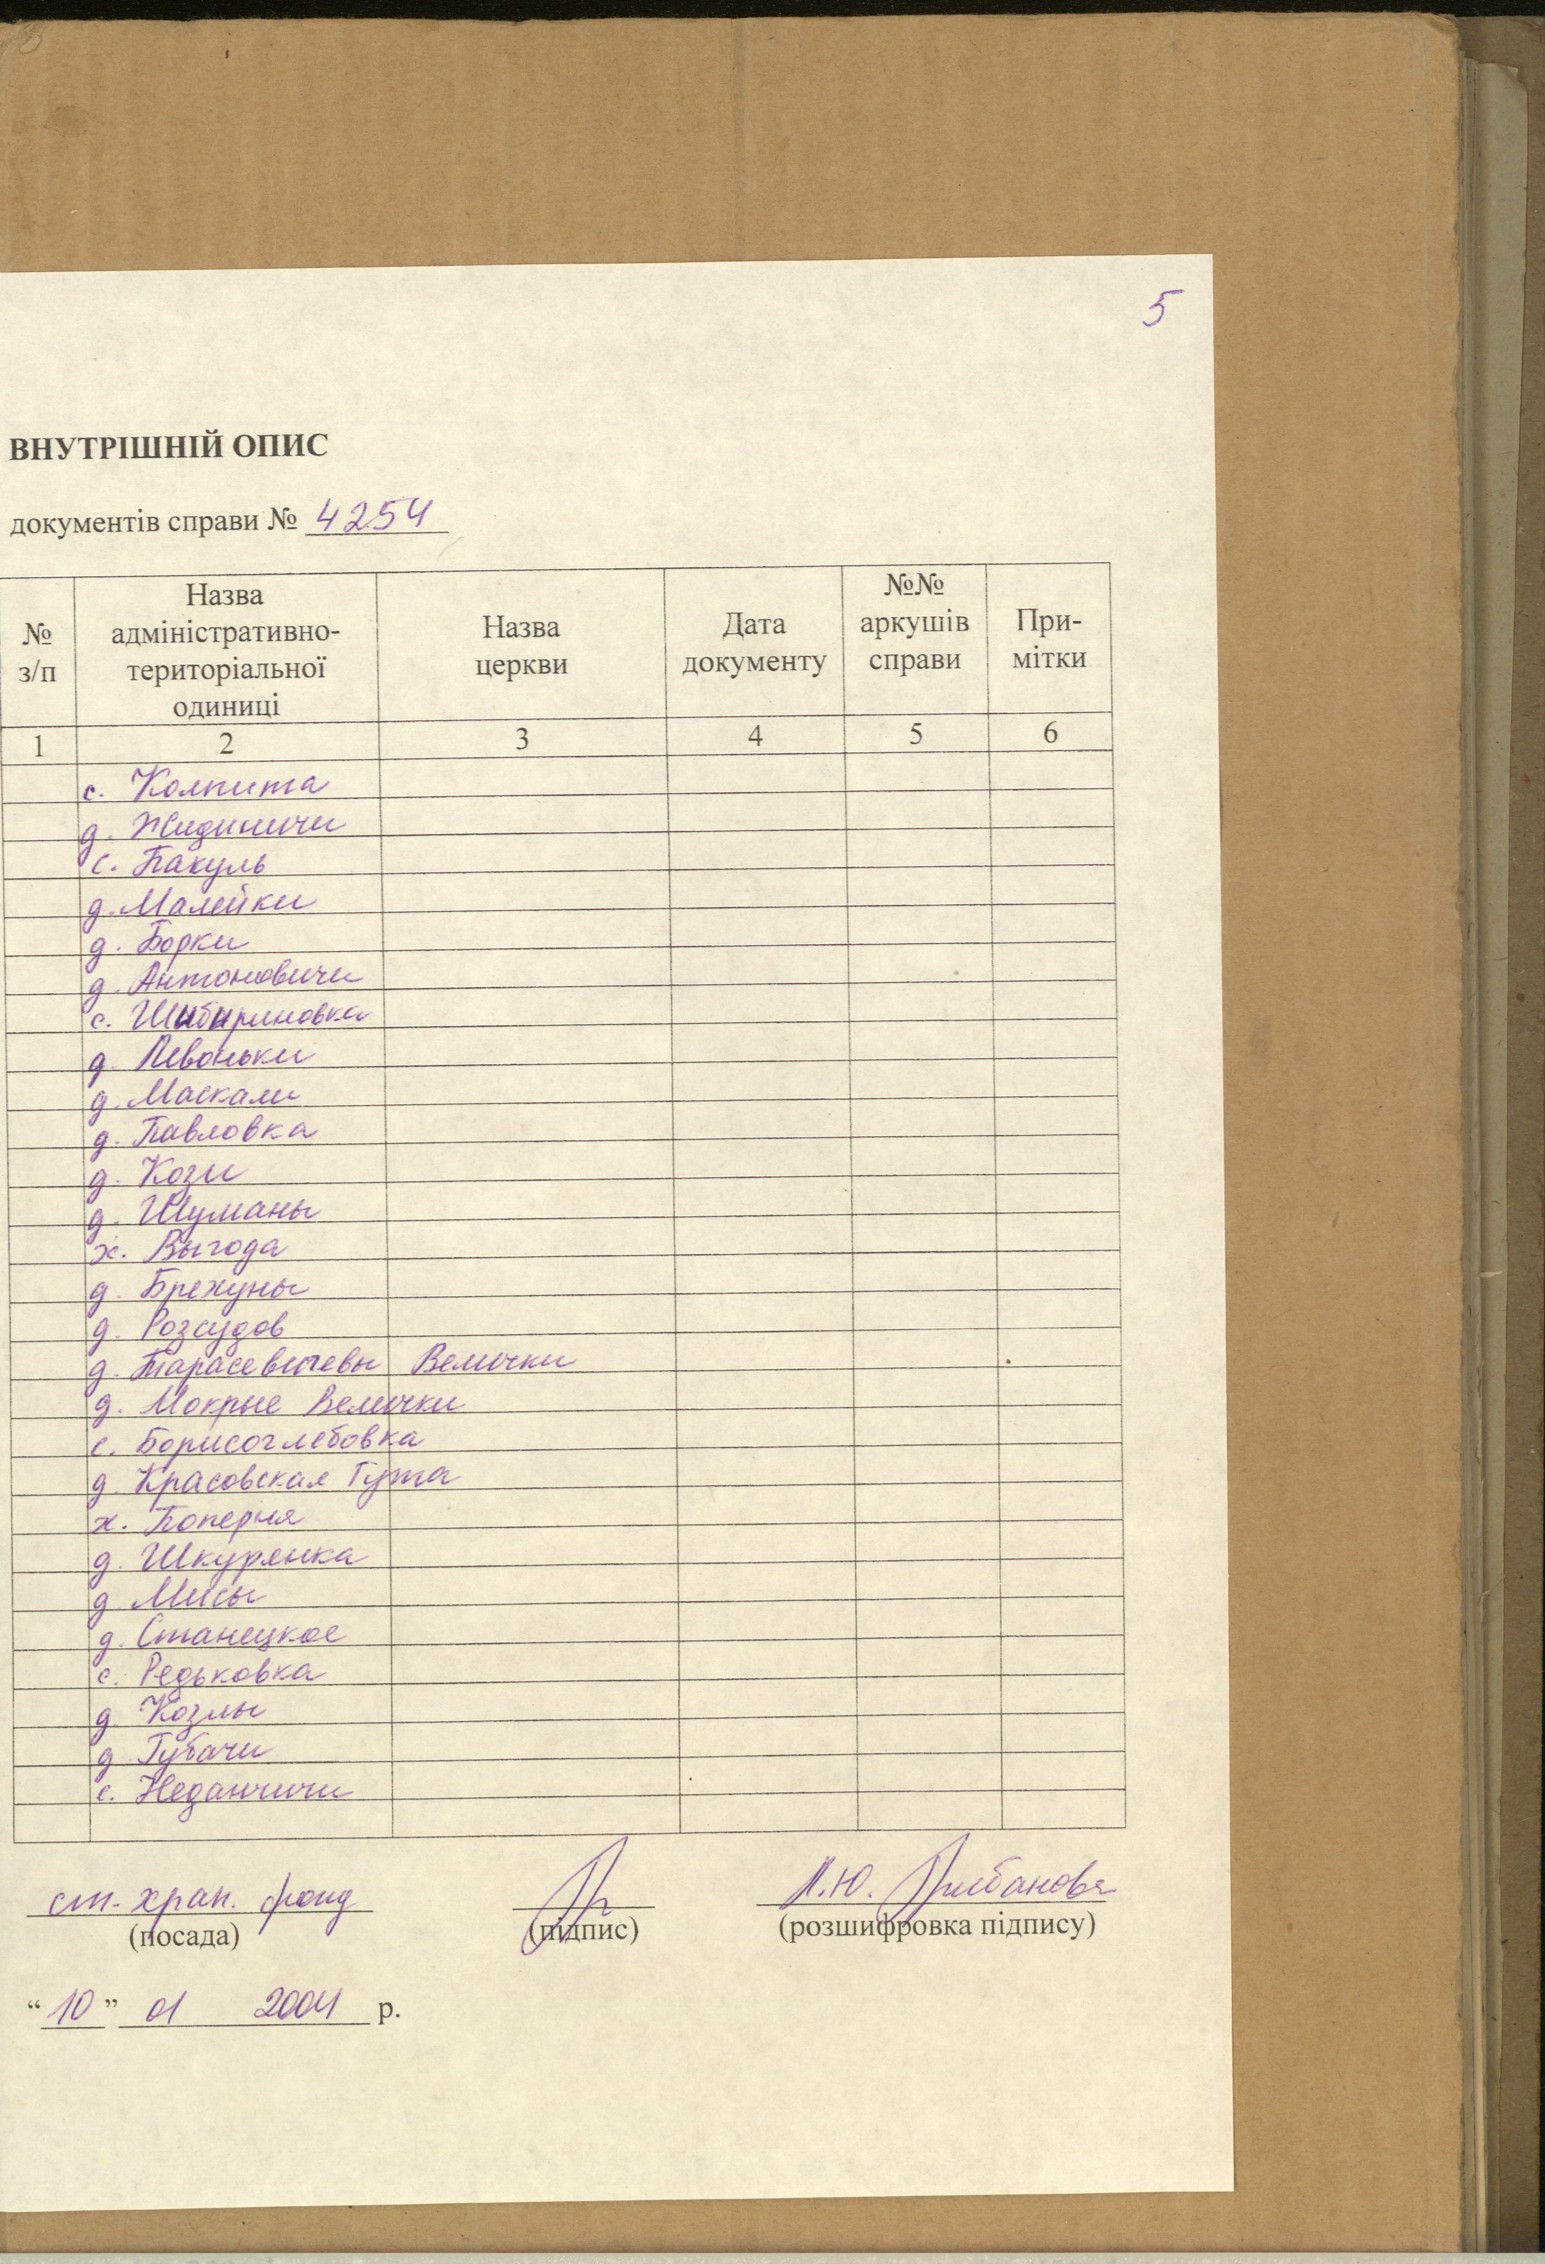 5
ВНУТРІШНІЙ ОПИС
документів справи № 4254
№ з/п
Назва адміністративно-територіальної одиниці
Назва церкви
Дата документу
№№ аркушів справи
При-мітки
1 2 3 4 5 6
с. Колпита
д. Жидиничи
с. Пакуль
д. Малейки
д. Борки
д. Антоновичи
с. Шибириновка
д. Левоньки
д. Маскали
д. Павловка
д. Кози
д. Шуманы
х. Выгода
д. Брехуны
д. Розсудов
д. Тарасевичевы Велички
д. Мокрые Велички
с. Борисоглебовка
д. Красовская Гута
х. Поперня
д. Шкурянка
д Мисы
д. Станецкое
с. Редьковка
д. Козлы
д Губачи
с. Неданчичи
ст. хран. фонд
(посада) (підпис) (розшифровка підпису)
“10” 01 2004 р.